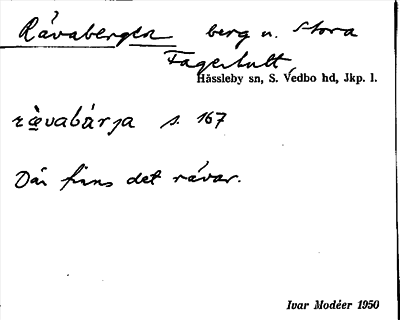 Rävabergen berg n. Stora
Fagerhult,
Hässleby sn, S. Vedbo hd, Jkp. l.
s. 167
Där fins det rävar.
Ivar Modéer 1950